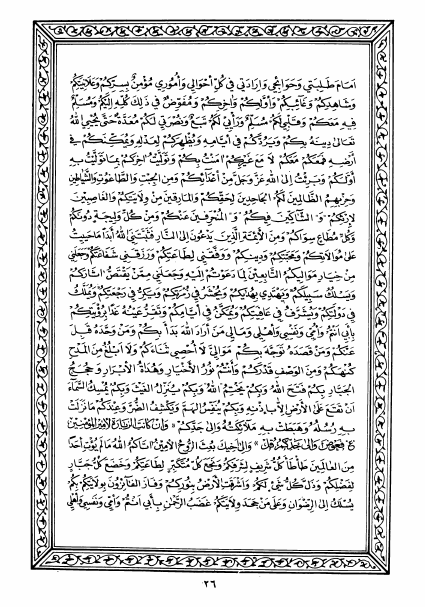 اَمَامَ طَلِبَتِي وَحَوَآئِجِي وَاِرَادَتِي فِي كُلِّ اَحْوَالِي وَاُمُورِي مُؤْمِنٌ بِسِرِّكُمْ وَعَلَانِيَتِكُمْ
وَشَاهِدِكُمْ وَغَآئِبِكُمْ وَاَوَّلِكُمْ وَاٰخِرِكُمْ وَمُفَوِّضٌ فِي ذٰلِكَ كُلِّهِ اِلَيْكُمْ وَمُسَلِّمٌ
فِيهِ مَعَكُمْ وَقَلْبِي لَكُمْ مُسَلِّمٌ وَرَأْيِي لَكُمْ تَبَعٌ وَنُصْرَتِي لَكُمْ مُعَدَّةٌ حَتّٰى يُحْيِيَ اللّٰهُ
تَعَالٰى دِينَهُ بِكُمْ وَيَرُدَّكُمْ فِي اَيَّامِهِ وَيُظْهِرَكُمْ لِعَدْلِهِ وَيُمَكِّنَكُمْ فِي
اَرْضِهِ فَمَعَكُمْ مَعَكُمْ لَا مَعَ غَيْرِكُمْ اٰمَنْتُ بِكُمْ وَتَوَلَّيْتُ اٰخِرَكُمْ بِمَا تَوَلَّيْتُ بِهِ
اَوَّلَكُمْ وَبَرِئْتُ اِلَى اللّٰهِ عَزَّ وَجَلَّ مِنْ اَعْدَآئِكُمْ وَمِنَ الْجِبْتِ وَالطَّاغُوتِ وَالشَّيَاطِينِ
وَحِزْبِهِمُ الظَّالِمِينَ لَكُمُ الْجَاحِدِينَ لِحَقِّكُمْ وَالْمَارِقِينَ مِنْ وِلَايَتِكُمْ وَالْغَاصِبِينَ
لِاِرْثِكُمْ وَ الشَّآكِّينَ فِيكُمْ وَ الْمُنْحَرِفِينَ عَنْكُمْ وَمِنْ كُلِّ وَلِيجَةٍ دُونَكُمْ
وَكُلِّ مُطَاعٍ سِوَاكُمْ وَمِنَ الْاَئِمَّةِ الَّذِينَ يَدْعُونَ اِلَى النَّارِ فَثَبَّتَنِيَ اللّٰهُ اَبَدًا مَا حَيِيتُ
عَلٰى مُوَالَاتِكُمْ وَمَحَبَّتِكُمْ وَدِينِكُمْ وَوَفَّقَنِي لِطَاعَتِكُمْ وَرَزَقَنِي شَفَاعَتَكُمْ وَجَعَلَنِي
مِنْ خِيَارِ مَوَالِيكُمُ التَّابِعِينَ لِمَا دَعَوْتُمْ اِلَيْهِ وَجَعَلَنِي مِمَّنْ يَقْتَصُّ اٰثَارَكُمْ
وَيَسْلُكُ سَبِيلَكُمْ وَيَهْتَدِي بِهُدَيٰكُمْ وَيُحْشَرُ فِي زُمْرَتِكُمْ وَيَكِرُّ فِي رَجْعَتِكُمْ وَيُمَلَّكُ
فِي دَوْلَتِكُمْ وَيُشَرَّفُ فِي عَافِيَتِكُمْ وَيُمَكَّنُ فِي اَيَّامِكُمْ وَتَقَرُّ عَيْنُهُ غَدًا بِرُؤْيَتِكُمْ
بِاَبِي اَنْتُمْ وَاُمِّي وَنَفْسِي وَاَهْلِي وَمَالِي مَنْ اَرَادَ اللّٰهَ بَدَأَ بِكُمْ وَمَنْ وَحَّدَهُ قَبِلَ
عَنْكُمْ وَمَنْ قَصَدَهُ تَوَجَّهَ بِكُمْ مَوَالِيَّ لَا اُحْصِي ثَنَآءَكُمْ وَلَا اَبْلُغُ مِنَ الْمَدْحِ
كُنْهَكُمْ وَمِنَ الْوَصْفِ قَدْرَكُمْ وَاَنْتُمْ نُورُ الْاَخْيَارِ وَهُدَاةُ الْاَبْرَارِ وَ حُجَجُ
الْجَبَّارِ بِكُمْ فَتَحَ اللّٰهُ وَبِكُمْ يَخْتِمُ اللّٰهُ وَبِكُمْ يُنَزِّلُ الْغَيْثَ وَبِكُمْ يُمْسِكُ السَّمَآءَ
اَنْ تَقَعَ عَلَى الْاَرْضِ اِلَّا بِاِذْنِهِ وَبِكُمْ يُنَفِّسُ الْهَمَّ وَيَكْشِفُ الضُّرَّ وَعِنْدَكُمْ مَا نَزَلَتْ
بِهِ رُسُلُهُ وَهَبَطَتْ بِهِ مَلَآئِكَتُهُ وَاِلٰى جَدِّكُمْ
اٰتَاكُمُ اللّٰهُ مَا لَمْ يُؤْتِ اَحَدًا
مِنَ الْعَالَمِينَ طَأْطَأَ كُلُّ شَرِيفٍ لِشَرَفِكُمْ وَبَخَعَ كُلُّ مُتَكَبِّرٍ لِطَاعَتِكُمْ وَخَضَعَ كُلُّ جَبَّارٍ
لِفَضْلِكُمْ وَذَلَّ كُلُّ شَيْءٍ لَكُمْ وَاَشْرَقَتِ الْاَرْضُ بِنُورِكُمْ وَفَازَ الْفَآئِزُونَ بِوِلَايَتِكُمْ بِكُمْ
يُسْلَكُ اِلَى الرِّضْوَانِ وَعَلٰى مَنْ جَحَدَ وِلَايَتَكُمْ غَضَبُ الرَّحْمٰنِ بِاَبِي اَنْتُمْ وَاُمِّي وَنَفْسِي وَاَهْلِي
٢٦